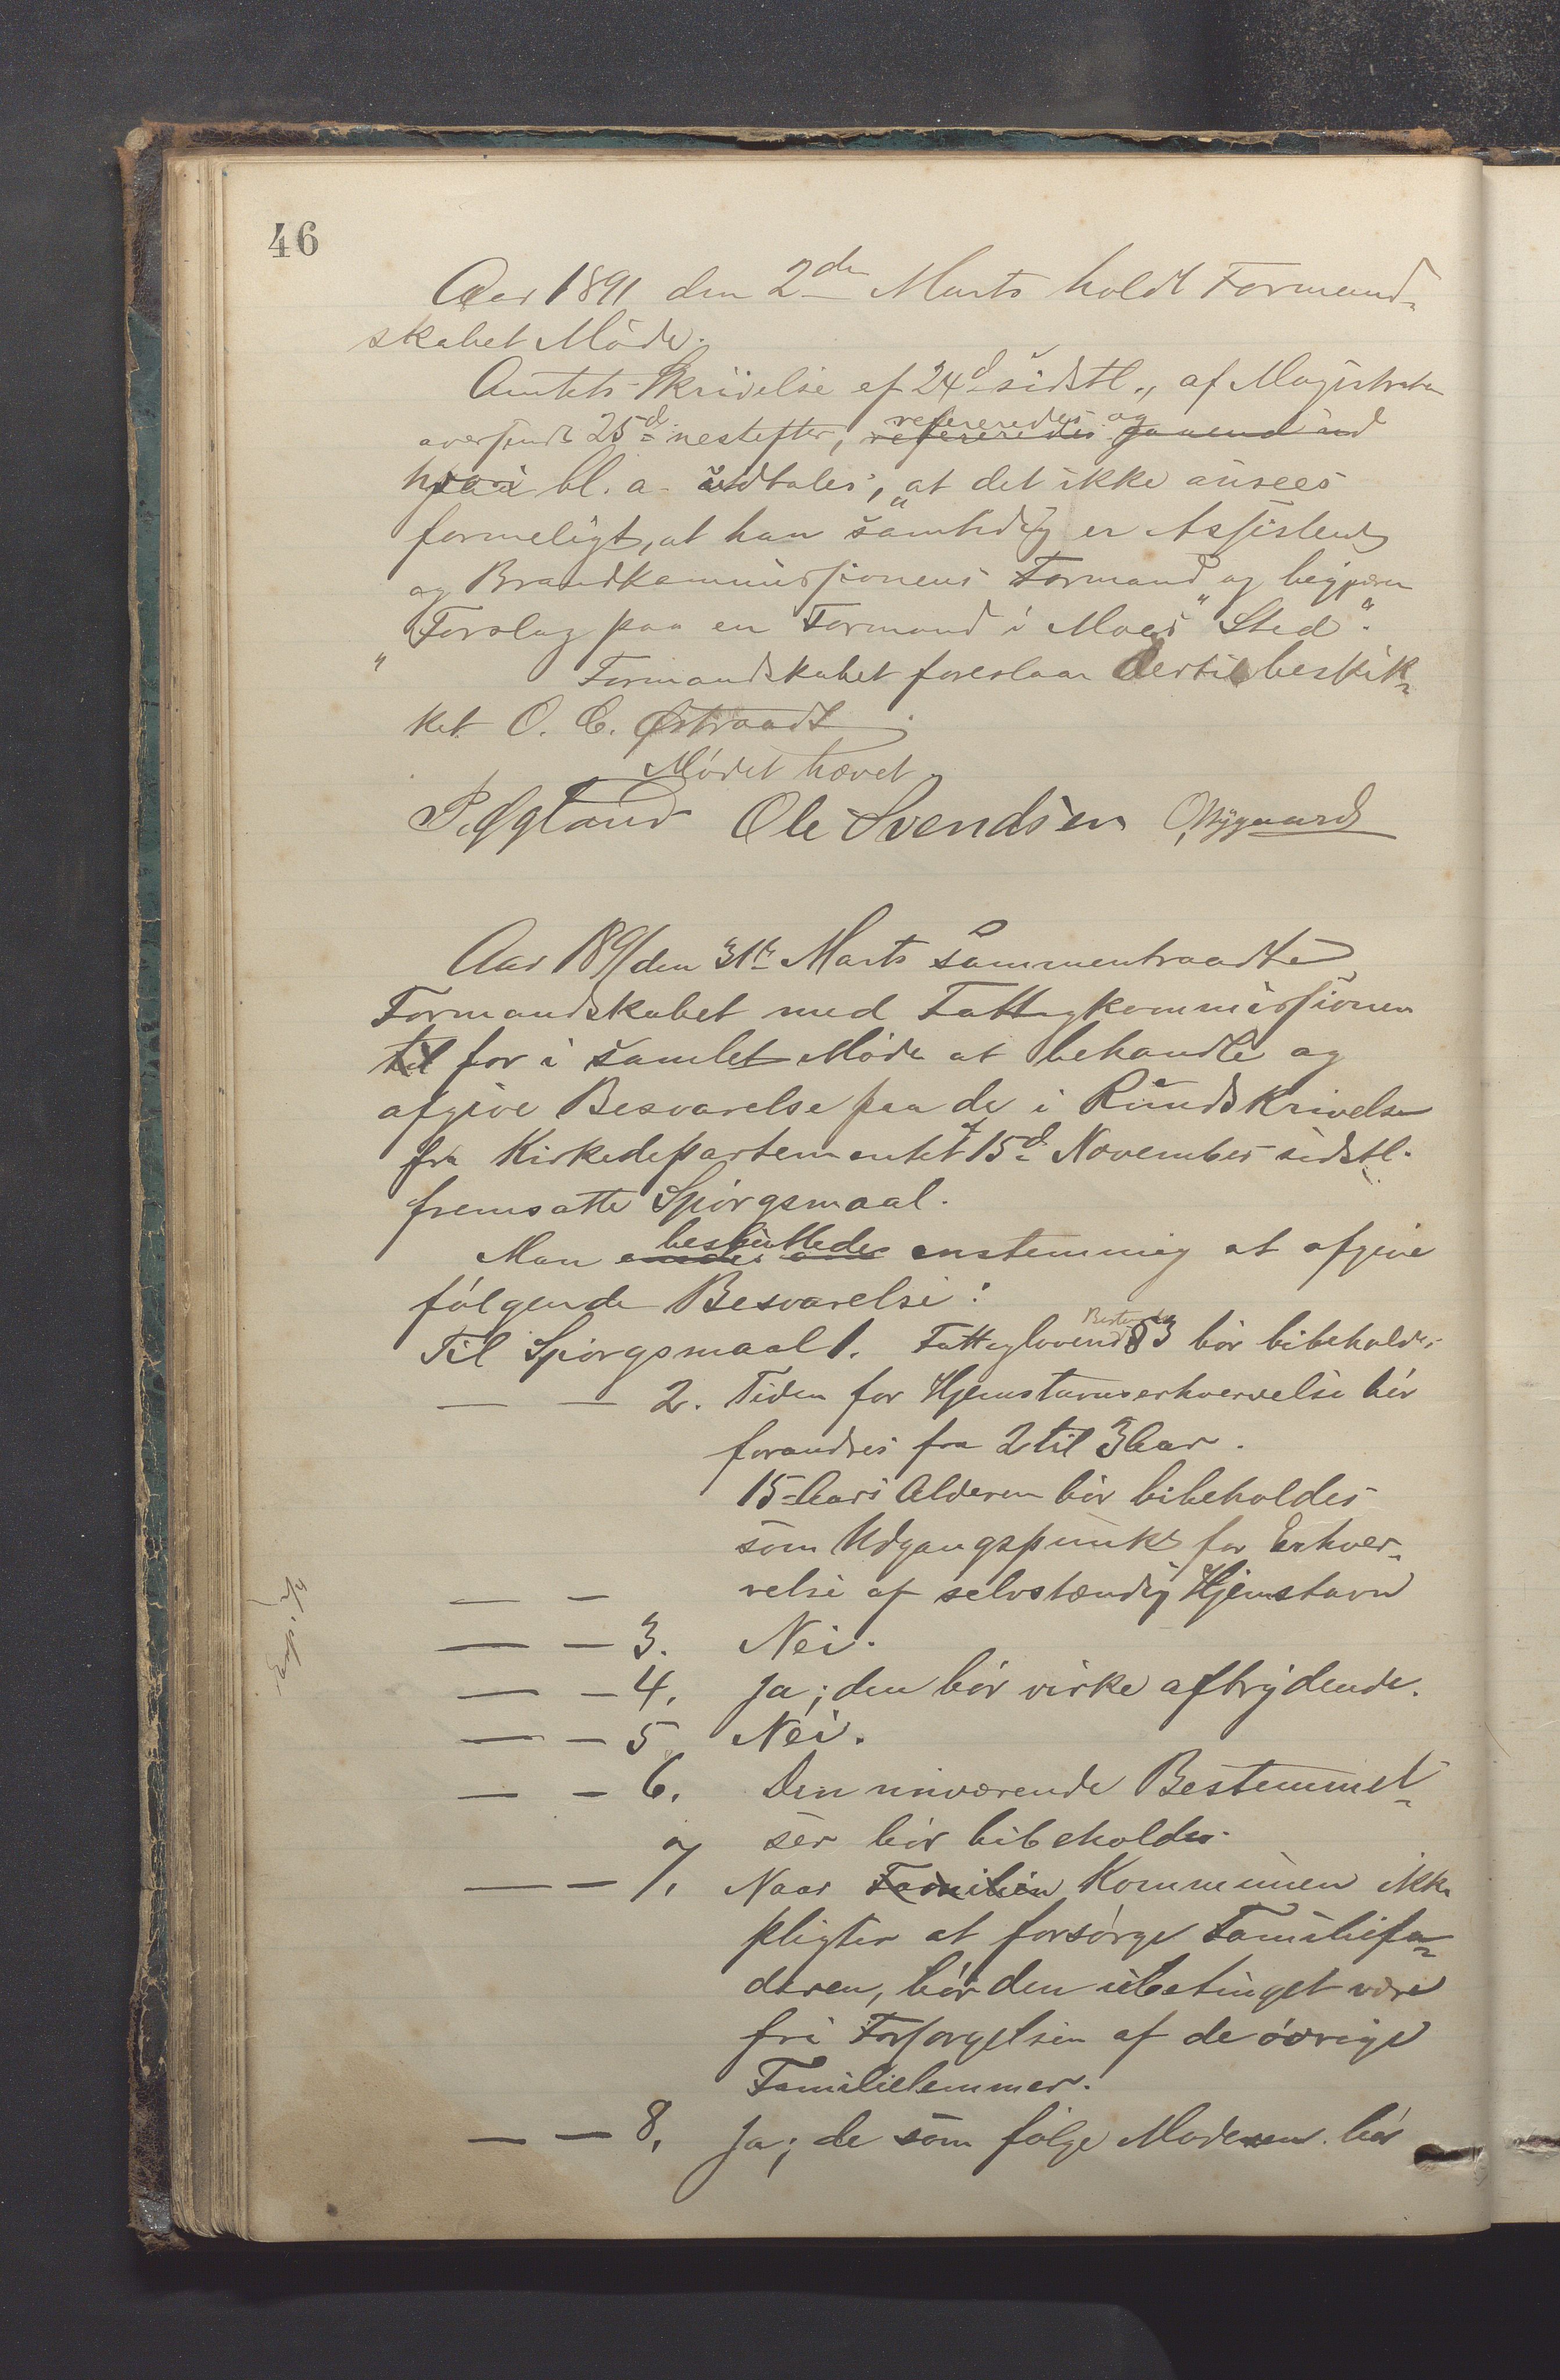 46
Aar 1891 den 2den Marts holdt Formand-
skabet Møde.
Amtets Skrivelse af 24d sidstl., af Magistraten
oversendt 25d nestefter, refereredes og
hvori bl. a. udtales, "at det ikke ansees
formeligt, at han samtidig er Assistent
og Brandkommissionens Formand" og begjærer
"Forslag paa en Formand i Moes Sted".
Formandskabet foreslaar dertil beskik-
ket O. C. Østraadt.
Mødet hævet.
Ole Svendsen O. Nygaard
Aar 1891 den 31te Marts sammentraadte
Formandskabet med Fattigkommissionen
til for i samlet Møde at behandle og
afgive Besvarelse paa de i Rundskrivelse
fra Kirkedepartementet af 15d November sidstl.
fremsatte Spørgsmaal.
Man besluttede enstemmig at afgive
følgende Besvarelse:
Til Spørgsmaal 1. Fattiglovens § 3 bør bibeholdes
— — 2. Tiden for Hjemstavnserhvervelse bør
forandres fra 2 til 3 Aar.
15-Aars Alderen bør bibeholdes
som Udgangspunkt for Erhver-
— — velse af selvstændig Hjemstavn
— — 3. Nei.
— — 4. Ja; den bør virke afbrydende.
— — 5 Nei.
— — 6. Den nuværende Bestemmel-
ser bør bibeholdes.
— — 7. Naar Familien Kommunen ikke
pligter at forsørge Familiefa-
deren, bør den ubetinget være
fri Forsorgelsen af de øvrige
Familielemmer.
— — 8. Ja; de som følge Moderen bør